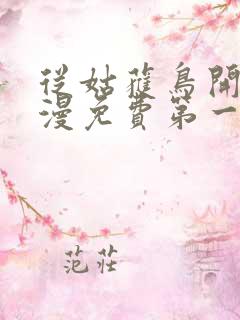 從姑蒦鳥開
漫免費第一
范莊